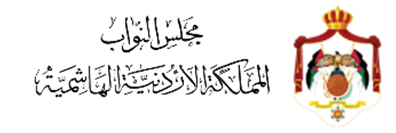 مجلس النواب
المملكة الأردنية الهاشمية